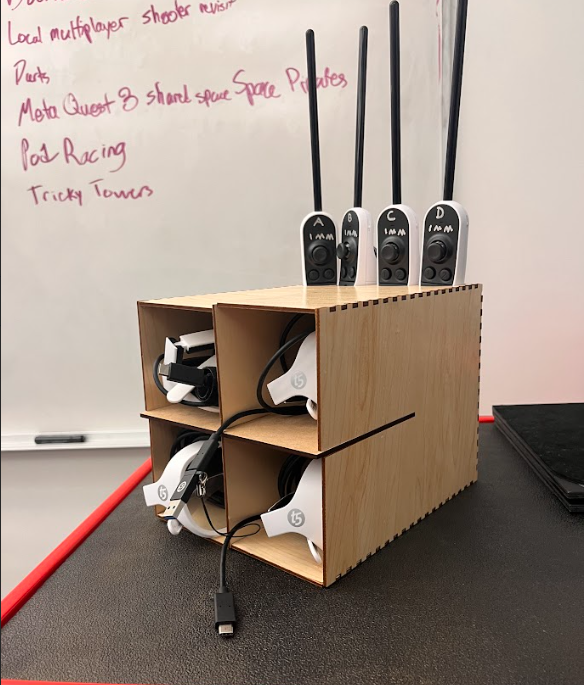 Local multiplayer shooter revisit
Darts
Meta Quest 3 shared space Space Pirates
Pod Racing
Tricky Towers
A
IMM
B
IMM
C
IMM
D
IMM
t5
t5
t5